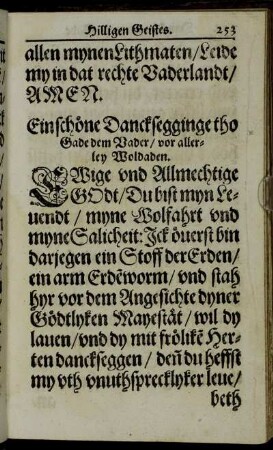 Hilligen Geistes. 253
allen mynen Lithmaten / Leide
my in dat rechte Vaderlandt /
AMEN.
Ein schöne Dancksegginge tho
Gade dem Vader / vor aller-
ley Woldaden.
EWige vnd Allmechtige
GOdt / Du bist myn Le-
uendt / myne Wolfahrt vnd
myne Salicheit: Jck öuerst bin
darjegen ein Stoff der Erden /
ein arm Erdēworm / vnd stah
hyr vor dem Angesichte dyner
Gödtlyken Mayestät / wil dy
lauen / vnd dy mit frölikē Her-
ten danckseggen / deñ du heffst
my vth vnuthsprecklyker leue /
beth